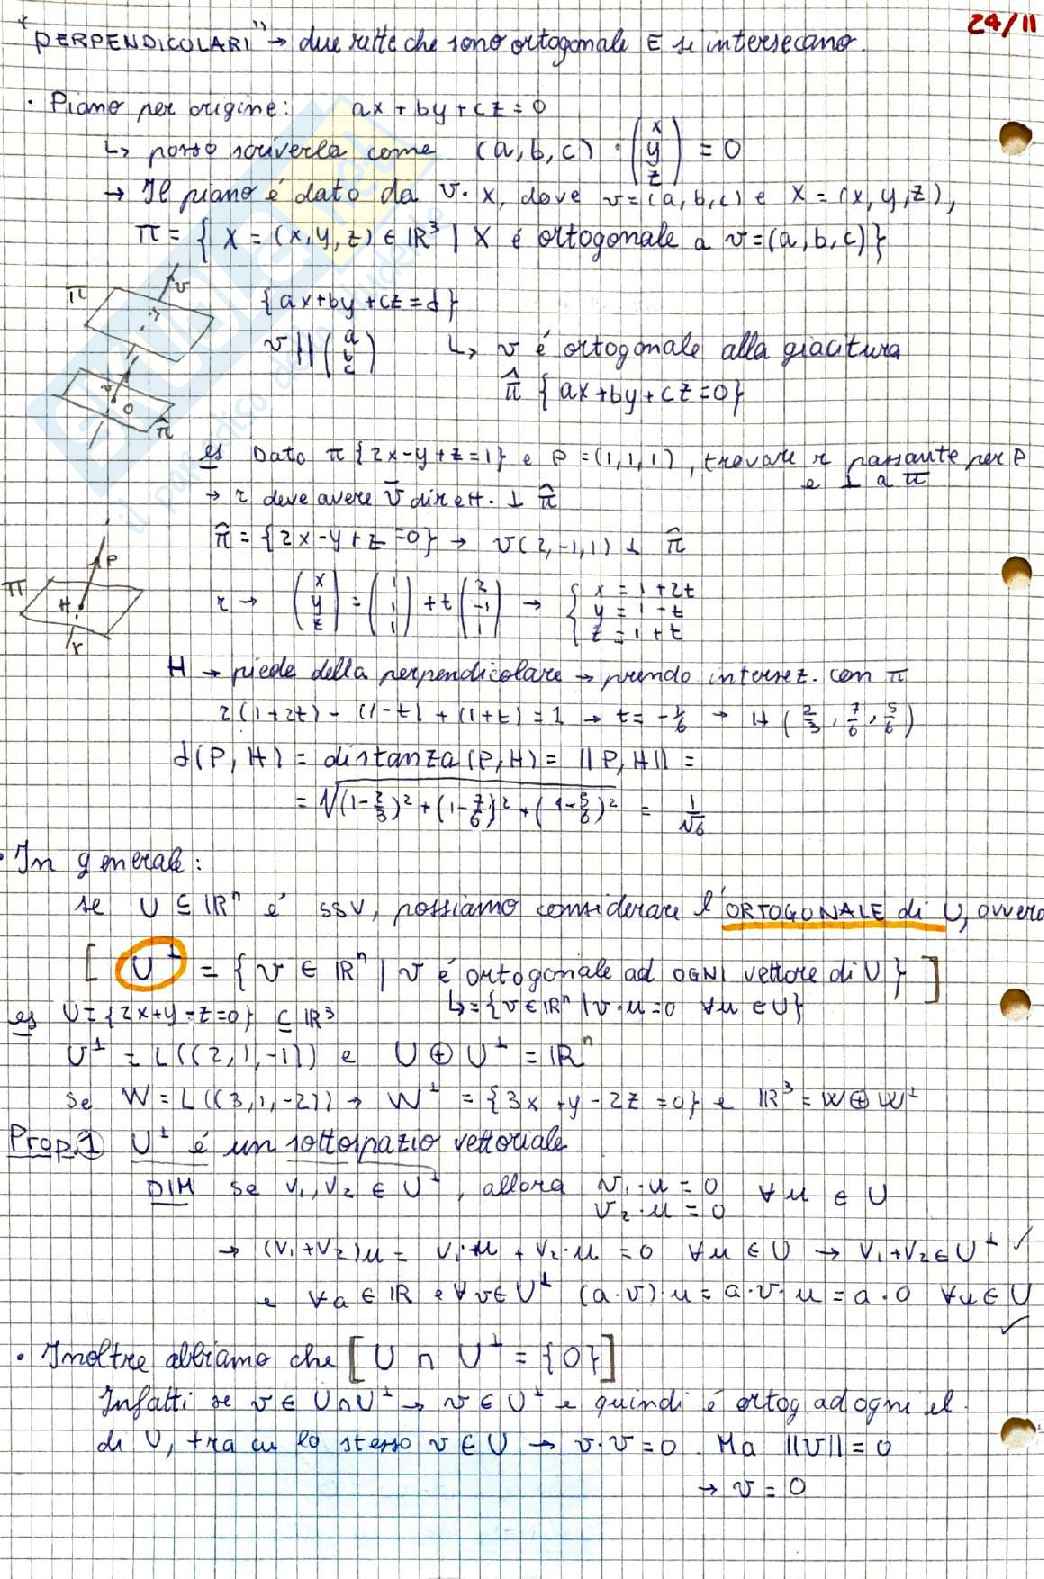 24/11
"PERPENDICOLARI" → due rette che sono ortogonale E si intersecano.
• Piano per origine: ax + by + cz = 0
↳ posso scriverla come (a, b, c) · (x y z) = 0
→ Il piano é dato da v · x, dove v = (a, b, c) e X = (x, y, z),
π = { X = (x, y, z) ∈ ℝ³ | X é ortogonale a v = (a, b, c) }
π v {ax + by + cz = d}
v // (a b c) ↳ v é ortogonale alla giacitura
π̂ {ax + by + cz = 0}
O π̂
es Dato π {2x - y + z = 1} e P = (1, 1, 1), trovare r passante per P
e ⊥ a π
→ r deve avere v̄ dirett. ⊥ π̂
π̂ = {2x - y + z = 0} → v(2, -1, 1) ⊥ π̂
π P H r
r → (x y z) = (1 1 1) + t (2 -1 1) → { x = 1 + 2t y = 1 - t z = 1 + t
H → piede della perpendicolare → prendo intersez. con π
2(1 + 2t) - (1 - t) + (1 + t) = 1 → t = -1/6 → H (2/3, 7/6, 5/6)
d(P, H) = distanza (P, H) = ||P, H|| =
= √(1 - 2/3)² + (1 - 7/6)² + (1 - 5/6)² = 1/√6
• In generale:
se U ⊆ ℝⁿ é ssv, possiamo considerare l'ORTOGONALE di U, ovvero
[ U^⊥ = { v ∈ ℝⁿ | v é ortogonale ad OGNI vettore di U } ]
↳ = {v ∈ ℝⁿ | v · u = 0 ∀u ∈ U}
es U = {2x + y - z = 0} ⊆ ℝ³
U^⊥ = L((2, 1, -1)) e U ⊕ U^⊥ = ℝⁿ
Se W = L((3, 1, -2)) → W^⊥ = {3x + y - 2z = 0} e ℝ³ = W ⊕ W^⊥
Prop. 1 U^⊥ é un sottospazio vettoriale
DIM se v₁, v₂ ∈ U^⊥, allora v₁ · u = 0 v₂ · u = 0 ∀u ∈ U
→ (v₁ + v₂)u = v₁ · u + v₂ · u = 0 ∀u ∈ U → v₁ + v₂ ∈ U^⊥ ✓
e ∀a ∈ ℝ e ∀v ∈ U^⊥ (a · v) · u = a · v · u = a · 0 ∀u ∈ U ✓
• Inoltre abbiamo che [ U ∩ U^⊥ = {0} ]
Infatti se v ∈ U ∩ U^⊥ → v ∈ U^⊥ e quindi é ortog ad ogni el.
di U, tra cu lo stesso v ∈ U → v · v = 0. Ma ||v|| = 0
→ v = 0